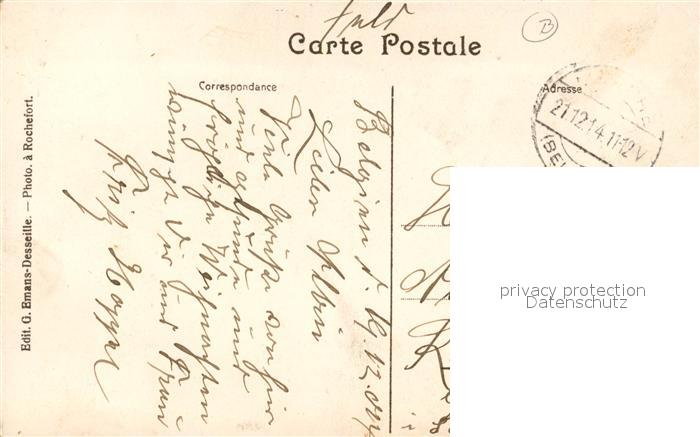 Feld
B
Carte Postale
Correspondance
Adresse
21.12.14.11-12V
(BEL
Edit. G. Emans-Desseille. — Photo. à Rochefort.
Belgien d. 19.12.
Lieber Albin
Viele Grüße von hier
und gesunde und
fröhliche Weihnachten
wünscht Dir und Frau
Fritz
privacy protection
Datenschutz